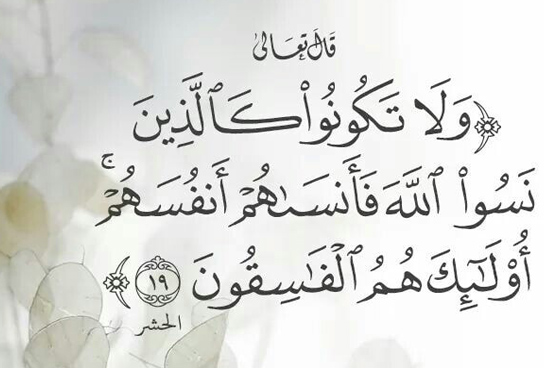 قال تعالى
﴿وَلَا تَكُونُوا۟ كَٱلَّذِينَ
نَسُوا۟ ٱللَّهَ فَأَنسَىٰهُمْ أَنفُسَهُمْ ۚ
أُو۟لَـٰٓئِكَ هُمُ ٱلْفَـٰسِقُونَ ١٩﴾
الحشر